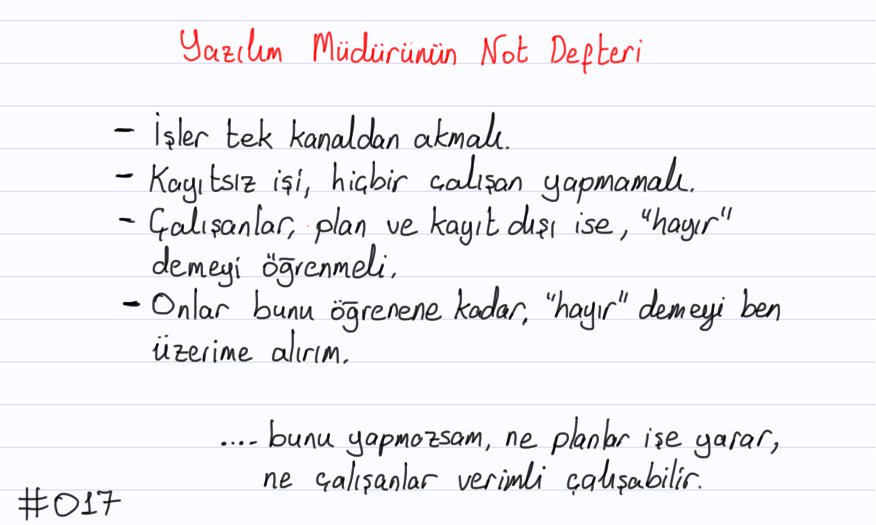 Yazılım Müdürünün Not Defteri
- İşler tek kanaldan akmalı.
- Kayıtsız işi, hiçbir çalışan yapmamalı.
- Çalışanlar, plan ve kayıt dışı ise, "hayır"
demeyi öğrenmeli.
- Onlar bunu öğrenene kadar, "hayır" demeyi ben
üzerime alırım.
.... bunu yapmazsam, ne planlar işe yarar,
ne çalışanlar verimli çalışabilir.
#017